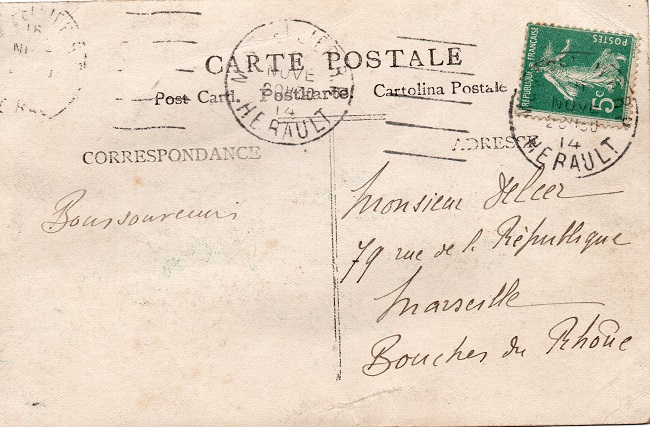 CARTE POSTALE
Post Card. Postkarte. Cartolina Postale
CORRESPONDANCE
ADRESSE
REPUBLIQUE FRANÇAISE
POSTES
5c
NOVE
14
HERAULT
NOV
14
HERAULT
Monsieur
79 rue de la République
Marseille
Bouches du Rhône